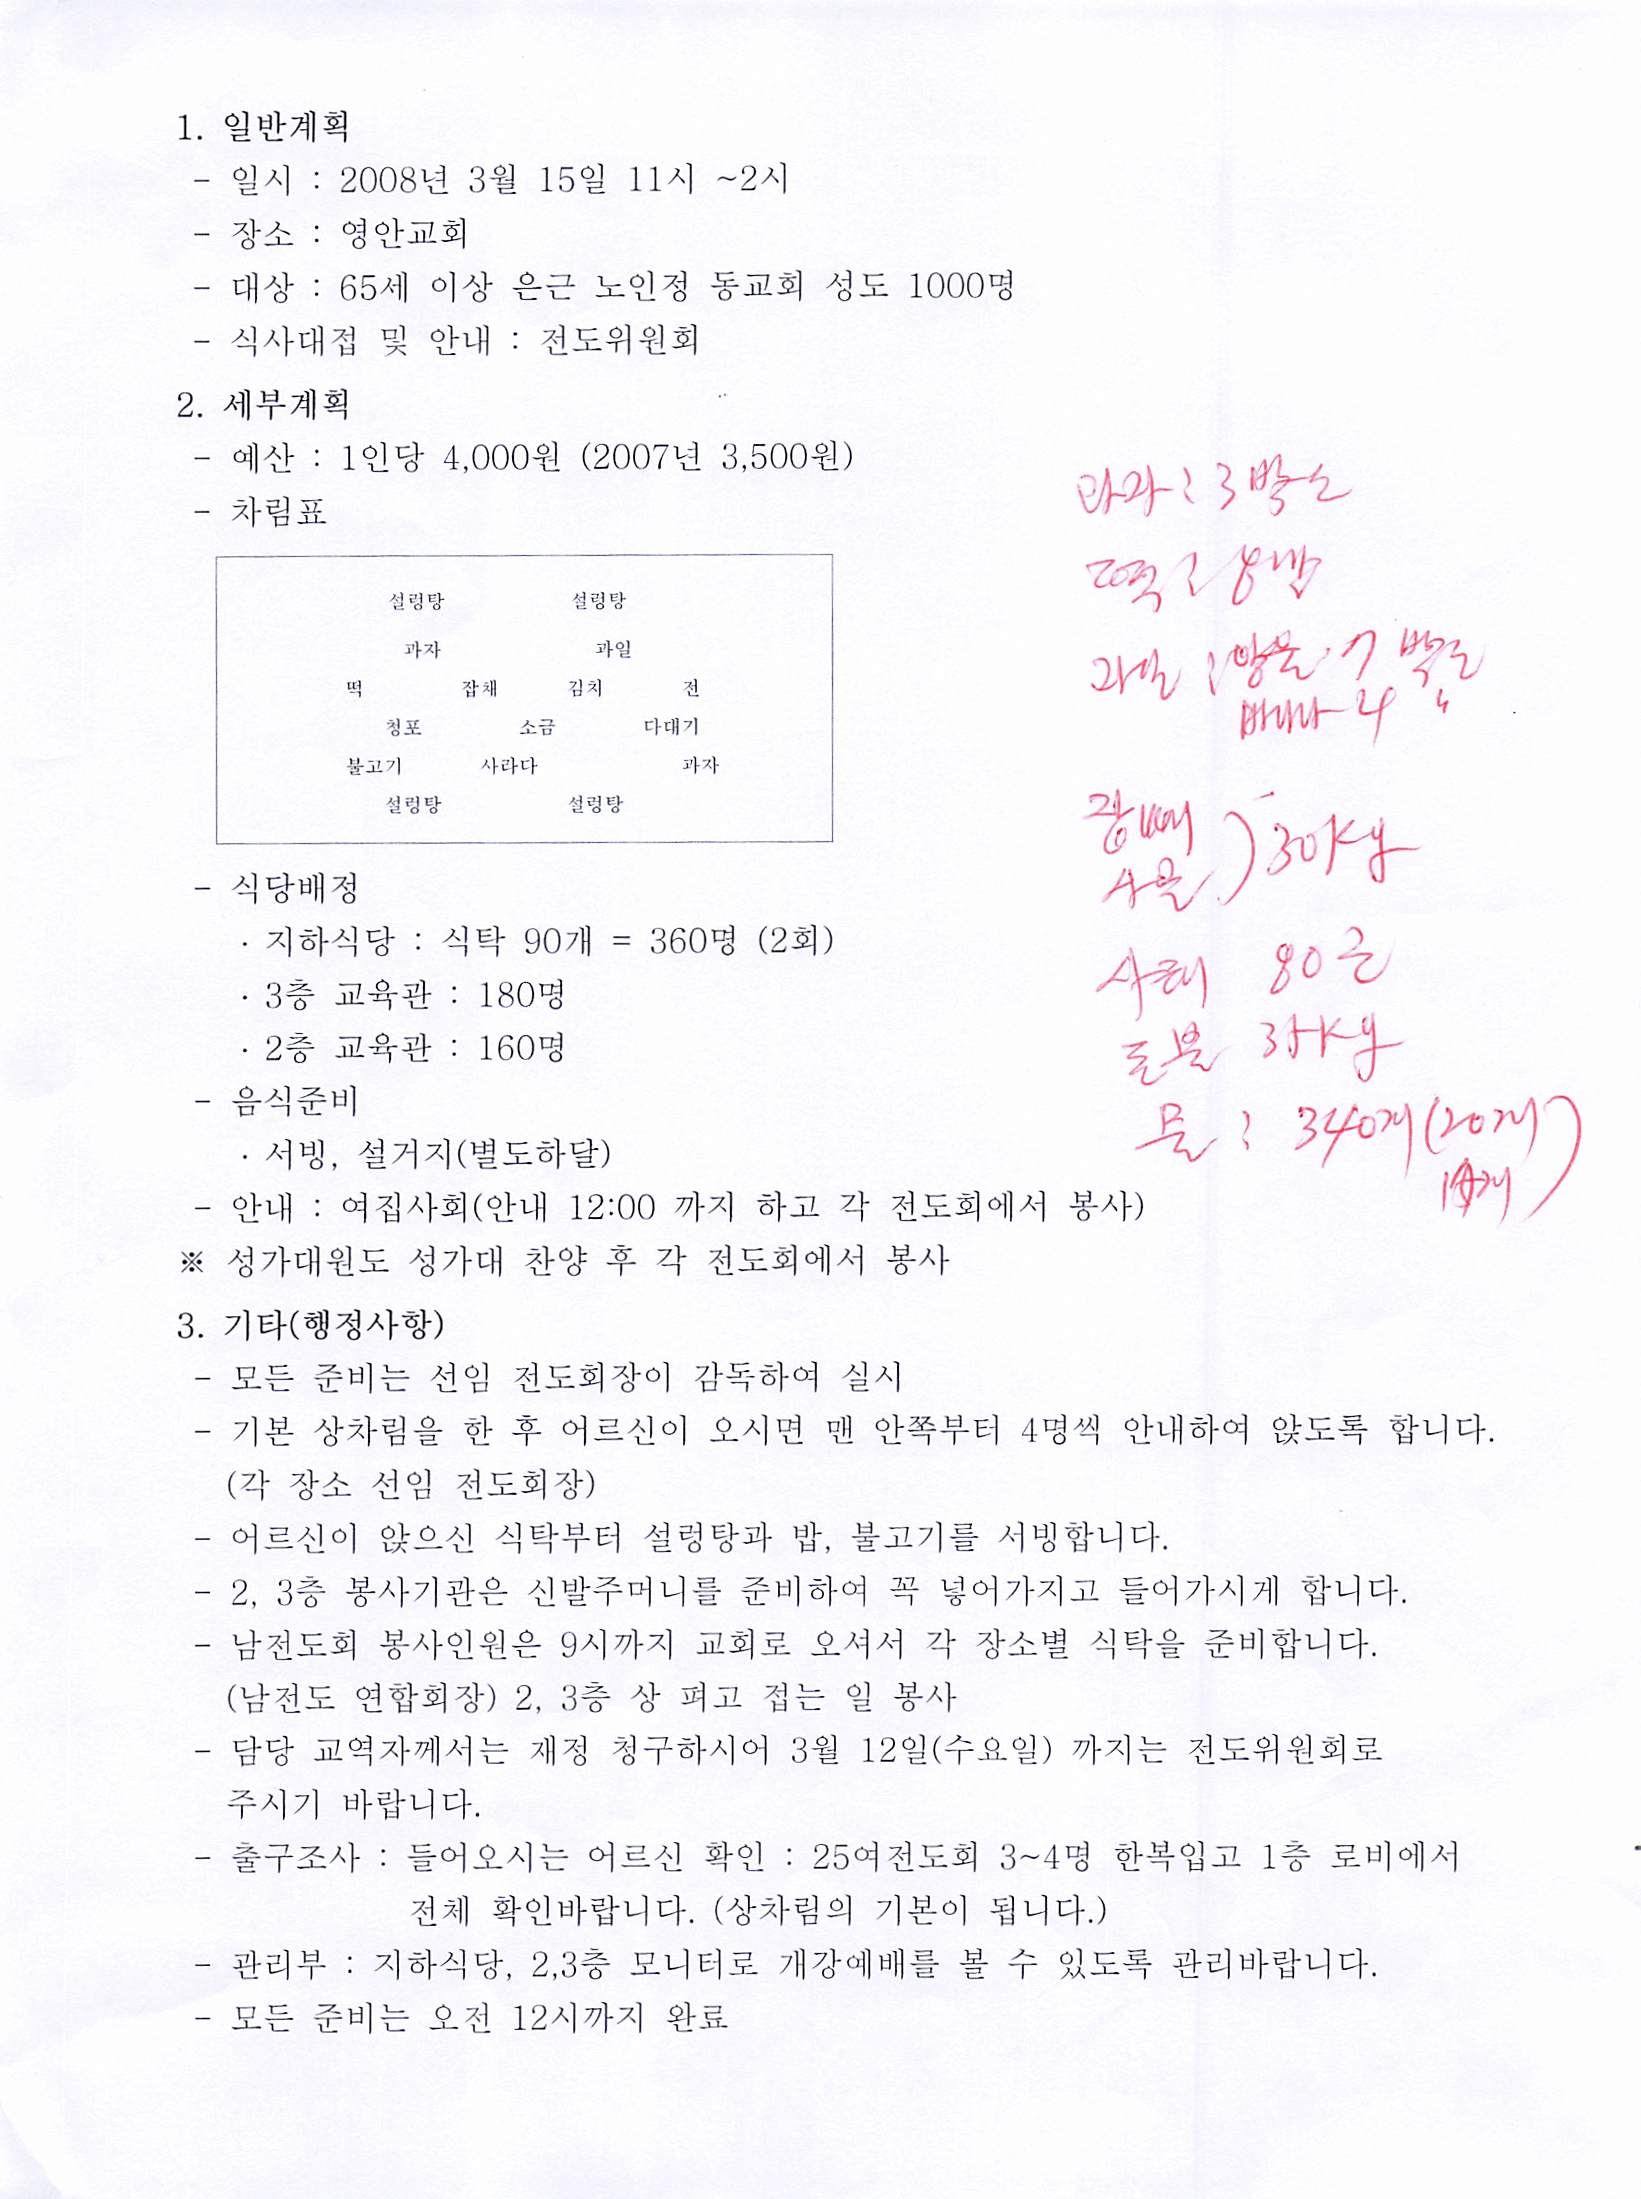 1. 일반계획
- 일시 : 2008년 3월 15일 11시 ~2시
- 장소 : 영안교회
- 대상 : 65세 이상 은근 노인정 동교회 성도 1000명
- 식사대접 및 안내 : 전도위원회
2. 세부계획
- 예산 : 1인당 4,000원 (2007년 3,500원)
- 차림표
설렁탕 설렁탕
과자 과일
떡 잡채 김치 전
청포 소금 다대기
불고기 사라다 과자
설렁탕 설렁탕
과자 : 3박스
떡 :
과일 : 7박스
바나나 4 "
30kg
사태 80근
kg
물 : 340개 (20개
- 식당배정
· 지하식당 : 식탁 90개 = 360명 (2회)
· 3층 교육관 : 180명
· 2층 교육관 : 160명
- 음식준비
· 서빙, 설거지(별도하달)
- 안내 : 여집사회(안내 12:00 까지 하고 각 전도회에서 봉사)
※ 성가대원도 성가대 찬양 후 각 전도회에서 봉사
3. 기타(행정사항)
- 모든 준비는 선임 전도회장이 감독하여 실시
- 기본 상차림을 한 후 어르신이 오시면 맨 안쪽부터 4명씩 안내하여 앉도록 합니다.
(각 장소 선임 전도회장)
- 어르신이 앉으신 식탁부터 설렁탕과 밥, 불고기를 서빙합니다.
- 2, 3층 봉사기관은 신발주머니를 준비하여 꼭 넣어가지고 들어가시게 합니다.
- 남전도회 봉사인원은 9시까지 교회로 오셔서 각 장소별 식탁을 준비합니다.
(남전도 연합회장) 2, 3층 상 펴고 접는 일 봉사
- 담당 교역자께서는 재정 청구하시어 3월 12일(수요일) 까지는 전도위원회로
주시기 바랍니다.
- 출구조사 : 들어오시는 어르신 확인 : 25여전도회 3~4명 한복입고 1층 로비에서
전체 확인바랍니다. (상차림의 기본이 됩니다.)
- 관리부 : 지하식당, 2,3층 모니터로 개강예배를 볼 수 있도록 관리바랍니다.
- 모든 준비는 오전 12시까지 완료